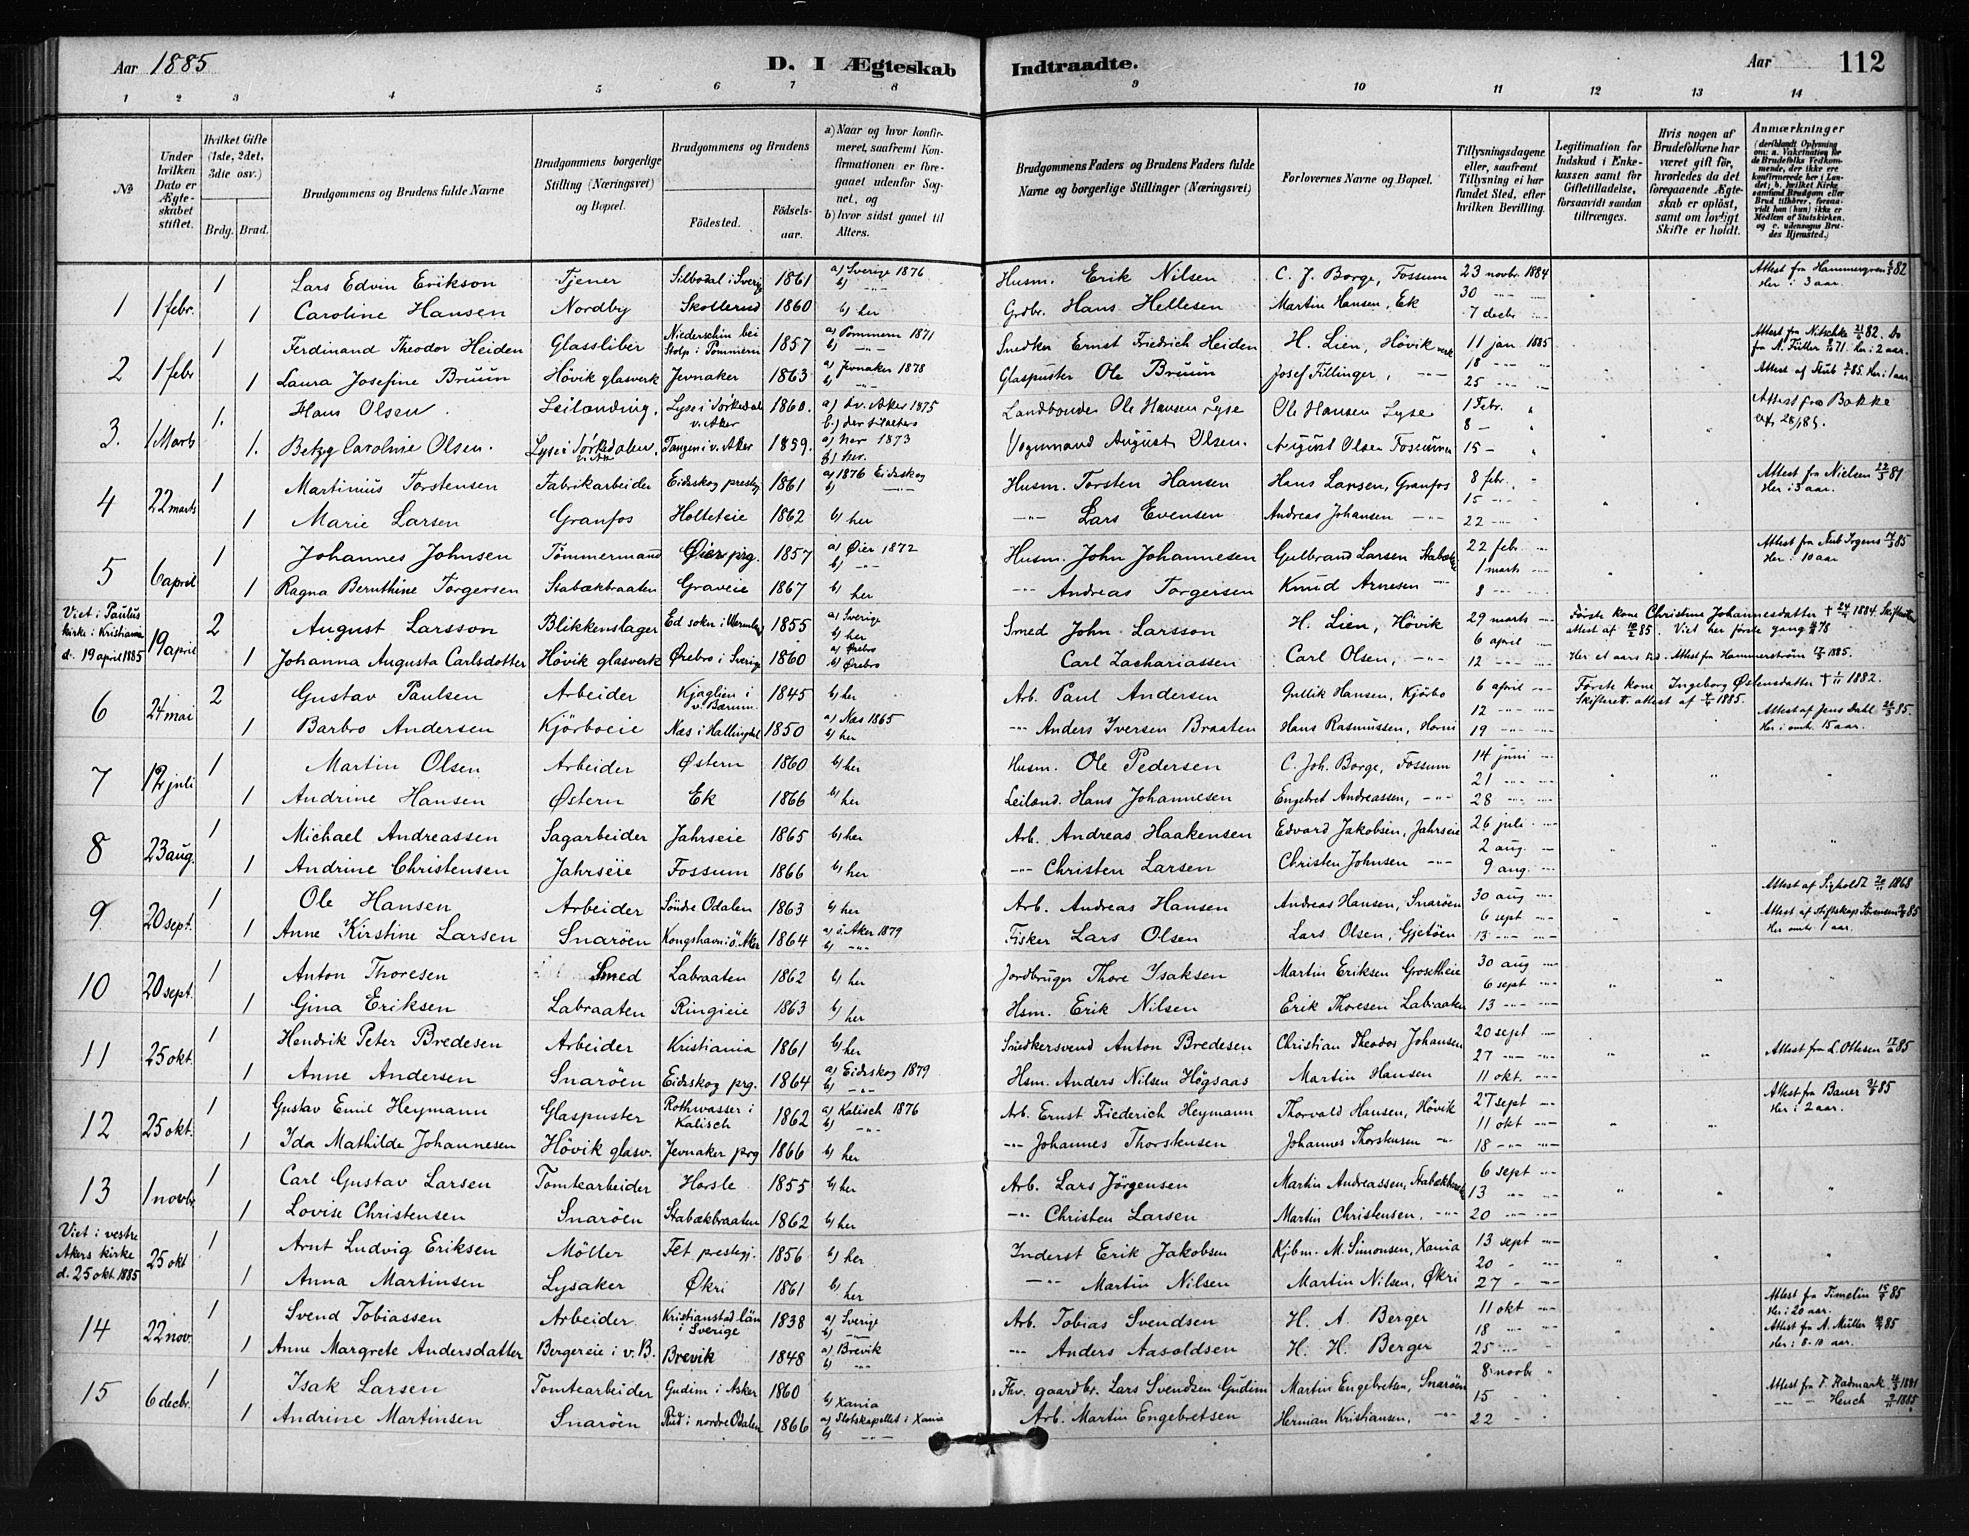 Aar 1885
D. I Ægteskab Indtraadte.
Aar 112
1 2 3 4 5 6 7 8 9 10 11 12 13 14
No
Under hvilken Dato er Ægteskabet stiftet.
Hvilket Gifte (1ste, 2det, 3die osv.)
Brdg. Brud.
Brudgommens og Brudens fulde Navne
Brudgommens borgerlige Stilling (Næringsvei) og Bopæl.
Brudgommens og Brudens
Fødested. Fødselsaar.
a) Naar og hvor konfirmeret, saafremt Konfirmationen er foregaaet udenfor Sognet, og
b) hvor sidst gaaet til Alters.
Brudgommens Faders og Brudens Faders fulde Navne og borgerlige Stillinger (Næringsvei)
Forlovernes Navne og Bopæl.
Tillysningsdagene eller, saafremt Tillysning ei har fundet Sted, efter hvilken Bevilling.
Legitimation for Indskud i Enkekassen samt for Giftetilladelse, forsaavidt saadan tiltrænges.
Hvis nogen af Brudefolkene har været gift før, hvorledes da det foregaaende Ægteskab er opløst, samt om lovligt Skifte er holdt.
Anmærkninger (deriblandt Oplysning om: a. Vakcination for de Brudefolks Vedkommende, der ikke ere konfirmerede her i Landet; b. hvilket Kirkesamfund Brudgom eller Brud tilhører, forsaavidt han (hun) ikke er Medlem af Statskirken, og c. udensogns Brudes Hjemsted.)
1 1 febr. 1 Lars Edvin Erikson Tjener Silbodal i Sverig 1861 a) Sverige 1876 b) -"- Husm. Erik Nilsen C. J. Borge, Fossum 23 novbr. 1884 Attest fra Hammergren 82 Her i 3 aar.
1 Caroline Hansen Nordby Skollerud 1860 b) her Grdbr. Hans Hellesen Martin Hansen, Ek 30 -"- 7 decbr -"-
2 1 febr 1 Ferdinand Theodor Heiden Glassliber Niederschin bei Stolp i Pommern 1857 a) Pommern 1871 b) -"- Snedker Ernst Friedrich Heiden H. Lien, Hövik verk 11 jan 1885 Attest fra Nitschke 82. Do fra N. Fütter 71. Her i 2 aar.
1 Laura Josefine Bruun Hövik glasverk Jevnaker 1863 a) Jevnaker 1878 b) -"- Glaspuster Ole Bruun Josef Fillinger, -"- 18 -"- 25 -"- Attest af Stub 85. Her i 1 aar.
3. 1 Marts 1. Hans Olsen. Leilænding, Lyse i Sørkedal v. Aker 1860. a) v. Aker 1875 b.) dersteds Landbonde Ole Hansen Lyse Ole Hansen Lyse 1 Febr. " 8 - " Attest fra Bakke
1. Betzy Caroline Olsen. Lyse i Sørkedalen, v. Ak Tangen i v. Aker 1859. a) her 1873 b) her. Vognmand August Olsen. August Olsen Fossum 15 - "
4 22 marts 1 Martinius Torstensen Fabrikarbeider Eidsskog prestg. 1861 a) 1876 Eidsskog b) -"- Husm. Torsten Hansen Hans Larsen, Granfos 8 febr. " Attest fra Nielsen 81 Her i 3 aar.
1 Marie Larsen Granfos Holteteie 1862 b) her -"- Lars Evensen Andreas Johansen -"- 15 -"- 22 -"-
5 6 april 1 Johannes Johnsen Tømmermand Øier prg. 1857 a) Øier 1872 b) -"- Husm. John Johannesen Gulbrand Larsen Stabæk 22 febr. 1 marts Attest fra Nub Irgens 85 Her i 10 aar
1 Ragna Bernthine Torgersen Stabækbraaten Graveie 1867 b) her -"- Andreas Torgersen Knud Arnesen -"- 8 -"-
Viet i Paulus kirke i Kristiania d. 19 april 1885 19 april 2 August Larsson Blikkenslager Ed sokn i Wermland 1855 a) Sverige b) her Smed John Larsson H. Lien, Hövik 29 marts 6 april Første kone Christine Johannesdatter † 1884. Skifteattest af 85. Viet her første gang 78
1 Johanna Augusta Carlsdotter Hövik glasverk Ørebro i Sverige 1860 a) Ørebro b) Ørebro Carl Zachariassen Carl Olsen, -"- 12 -"- Her et aars tid. Attest fra Hammerstrøm 1885.
6 24 mai 2 Gustav Paulsen Arbeider Kjaglien i v. Bærum 1845 b) her Arb. Paul Andersen Gullik Hansen, Kjörbo 6 april 12 -"- Første kone Ingeborg Østensdatter † 1882. Skifterett. attest af 1885.
1 Barbro Andersen Kjörboeie Næs i Hallingdal 1850 a) Næs 1865 b) her -"- Anders Iversen Braaten Hans Rasmussen, Horni 19 -"- Attest af Jens Dahl 85. Her i omtr. 15 aar.
7 12 juli 1 Martin Olsen Arbeider Østern 1860 b) her Husm. Ole Pedersen C. Joh. Borge, Fossum 14 juni 21 -"-
1 Andrine Hansen Østern Ek 1866 b) her Leiland. Hans Johannesen Engebret Andreassen, -"- 28 -"-
8 23 aug. 1 Michael Andreassen Sagarbeider Jahrseie 1865 b) her Arb. Andreas Haakensen Edvard Jakobsen, Jahrseie 26 juli 2 aug.
1 Andrine Christensen Jahrseie Fossum 1866 b) her -"- Christen Larsen Christen Johnsen -"- 9 aug.
9 20 sept. 1 Ole Hansen Arbeider Söndre Odalen 1863 b) her Arb. Andreas Hansen Andreas Hansen, Snaröen 30 aug 6 sept Attest af Sigholdt 1868
1 Anne Kirstine Larsen Snaröen Kongshavn i ö. Aker 1864 a) ö. Aker 1879 b) -"- Fisker Lars Olsen Lars Olsen, Gjetöen 13 -"- Attest af Stiftskap Sørensen 85 Her omtr. 1 aar.
10 20 sept. 1 Anton Thoresen Smed Labraaten 1862 b) her Jordbruger Thore Isaksen Martin Eriksen Grosetheie 30 aug 6 sept
1 Gina Eriksen Labraaten Ringieie 1863 b) her Hsm. Erik Nilsen Erik Thoresen Labraaten 13 -"-
11 25 okt. 1 Hendrik Peter Bredesen Arbeider Kristiania 1861 b) her Snedkersvend Anton Bredesen Christian Theodor Johansen 20 sept 27 -"- Attest fra L. Ottesen 85
1 Anne Andersen Snaröen Eidsskog prg. 1864 a) Eidsskog 1879 b) -"- Hsm. Anders Nilsen Högsaas Martin Hansen 11 okt.
12 25 okt. 1 Gustav Emil Heymann Glaspuster Rothwasser i Kalisch 1862 a) Kalisch 1876 b) -"- Arb. Ernst Friederich Heymann Thorvald Hansen, Hövik 27 sept 11 okt Attest fra Bauer 85 Her i 2 aar.
1 Ida Mathilde Johannesen Hövik glasv. Jevnaker prg 1866 b) her -"- Johannes Thorstensen Johannes Thorstensen -"- 18 -"-
13 1 novbr 1 Carl Gustav Larsen Tomtearbeider Horsle 1855 b) her Arb. Lars Jörgensen Martin Andreassen, Stabækbraaten 6 sept 13 -"-
1 Lovise Christensen Snaröen Stabækbraaten 1862 b) her -"- Christen Larsen Martin Christensen, -"- 20 -"-
Viet i vestre Akers kirke d. 25 okt 1885 25 okt 1 Arnt Ludvig Eriksen Möller Fet prestegj. 1856 b) her Inderst Erik Jakobsen Kjbm. M. Simonsen, Xania 13 sept 20 -
1 Anna Martinsen Lysaker Økri 1861 b) her -"- Martin Nilsen Martin Nilsen, Økri 27 -
14 22 nov. 1 Svend Tobiassen Arbeider Kristianstad län i Sverige 1838 a) Sverige b) -"- Arb. Tobias Svendsen H. A. Berger 11 okt 18 -"- Attest fra Timelin 85 Her i 20 aar.
1 Anne Margrete Andersdatter Bergereie i v. B. Brevik 1848 a) Brevik b) -"- -"- Anders Aasoldsen H. H. Berger 25 -"- Attest fra A. Müller 85 Her i 8-10 aar.
15 6 decbr. 1 Isak Larsen Tomtearbeider Gudim i Asker 1860 b) Xania Fhv. gaardbr. Lars Svendsen Gudim Martin Engebretsen, Snaröen 8 novbr 15 - Attest fra F. Hadmark 1881
1 Andrine Martinsen Snaröen Rud i nordre Odalen 1866 a) Slotskapellet i Xania b) -"- Arb. Martin Engebretsen Herman Kristiansen, -"- 22 - -"- Heuch 1885